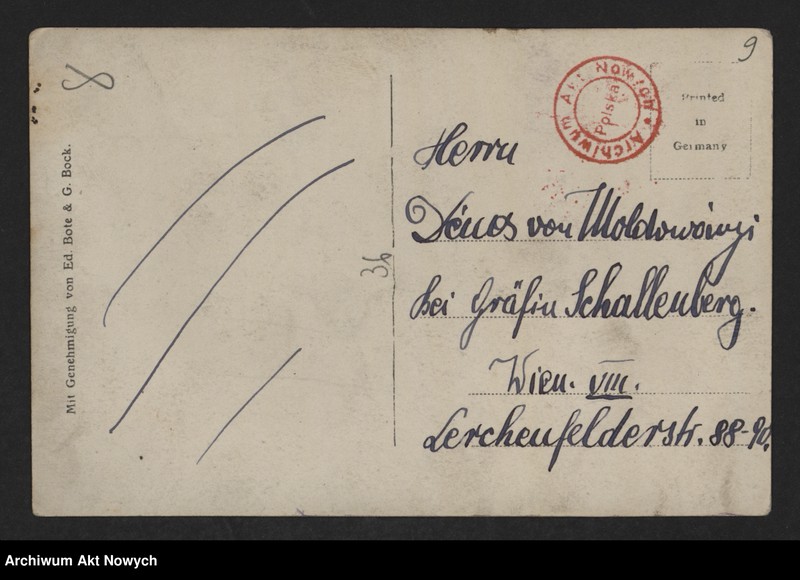 8
9
Mit Genehmigung von Ed. Bote & G. Bock.
36
Archiwum Akt Nowych
Polska
Printed
in
Germany
Herrn
Dénes von Moldoványi
bei Gräfin Schallenberg.
Wien. VIII.
Lerchenfelderstr. 88-90.
Archiwum Akt Nowych